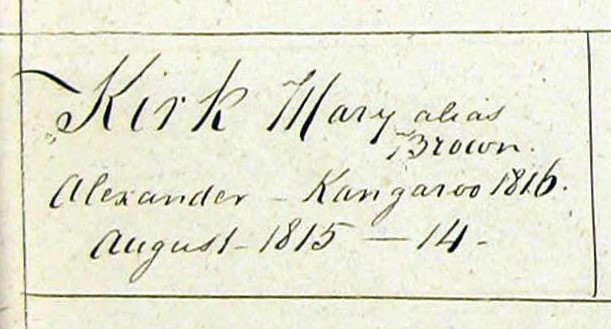 Kirk Mary alias
Brown.
Alexander - Kangaroo 1816.
August - 1815 - 14 -